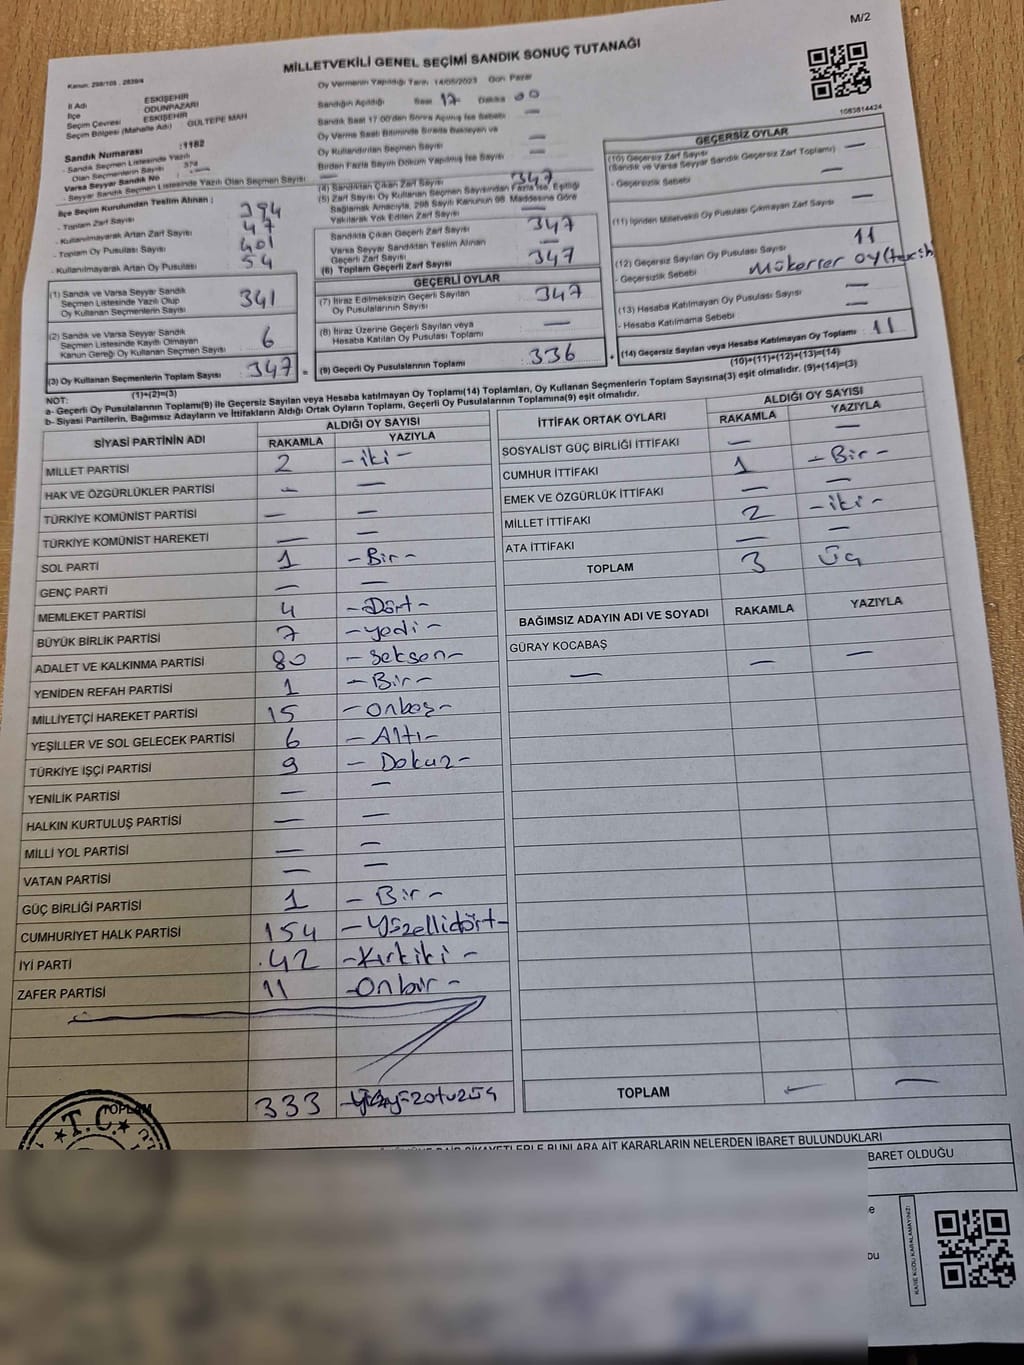 M/2
MİLLETVEKİLİ GENEL SEÇİMİ SANDIK SONUÇ TUTANAĞI
1083814424
Kanun: 298/105 , 2839/4
İl Adı ESKİŞEHİR
İlçe ODUNPAZARI
Seçim Çevresi ESKİŞEHİR
Seçim Bölgesi (Mahalle Adı) GÜLTEPE MAH
Sandık Numarası :1182
- Sandık Seçmen Listesinde Yazılı
Olan Seçmenlerin Sayısı : 374
Varsa Seyyar Sandık No : —
- Seyyar Sandık Seçmen Listesinde Yazılı Olan Seçmen Sayısı : —
İlçe Seçim Kurulundan Teslim Alınan :
- Toplam Zarf Sayısı 394
- Kullanılmayarak Artan Zarf Sayısı 47
- Toplam Oy Pusulası Sayısı 401
- Kullanılmayarak Artan Oy Pusulası 54
(1) Sandık ve Varsa Seyyar Sandık
Seçmen Listesinde Yazılı Olup
Oy Kullanan Seçmenlerin Sayısı 341
(2) Sandık ve Varsa Seyyar Sandık
Seçmen Listesinde Kayıtlı Olmayan
Kanun Gereği Oy Kullanan Seçmen Sayısı 6
(3) Oy Kullanan Seçmenlerin Toplam Sayısı 347 =
(1)+(2)=(3)
Oy Vermenin Yapıldığı Tarih 14/05/2023 Gün Pazar
Sandığın Açıldığı Saat 17 Dakika 00
Sandık Saat 17:00'den Sonra Açılmış İse Sebebi —
Oy Verme Saati Bitiminde Sırada Bekleyen ve
Oy Kullandırılan Seçmen Sayısı —
Birden Fazla Sayım Döküm Yapılmış İse Sayısı —
(4) Sandıktan Çıkan Zarf Sayısı 347
(5) Zarf Sayısı Oy Kullanan Seçmen Sayısından Fazla İse, Eşitliği
Sağlamak Amacıyla, 298 Sayılı Kanunun 98. Maddesine Göre
Yakılarak Yok Edilen Zarf Sayısı —
Sandıkta Çıkan Geçerli Zarf Sayısı 347
Varsa Seyyar Sandıktan Teslim Alınan
Geçerli Zarf Sayısı —
(6) Toplam Geçerli Zarf Sayısı 347
GEÇERLİ OYLAR
(7) İtiraz Edilmeksizin Geçerli Sayılan
Oy Pusulalarının Sayısı 347
(8) İtiraz Üzerine Geçerli Sayılan veya
Hesaba Katılan Oy Pusulası Toplamı —
(9) Geçerli Oy Pusulalarının Toplamı 336 +
GEÇERSİZ OYLAR
(10) Geçersiz Zarf Sayısı
(Sandık ve Varsa Seyyar Sandık Geçersiz Zarf Toplamı) —
- Geçersizlik Sebebi —
(11) İçinden Milletvekili Oy Pusulası Çıkmayan Zarf Sayısı —
(12) Geçersiz Sayılan Oy Pusulası Sayısı 11
- Geçersizlik Sebebi Mükerrer oy(tercih
(13) Hesaba Katılmayan Oy Pusulası Sayısı —
- Hesaba Katılmama Sebebi —
(14) Geçersiz Sayılan veya Hesaba Katılmayan Oy Toplamı 11
(10)+(11)+(12)+(13)=(14)
NOT:
a- Geçerli Oy Pusulalarının Toplamı(9) ile Geçersiz Sayılan veya Hesaba Katılmayan Oy Toplamı(14) Toplamları, Oy Kullanan Seçmenlerin Toplam Sayısına(3) eşit olmalıdır. (9)+(14)=(3)
b- Siyasi Partilerin, Bağımsız Adayların ve İttifakların Aldığı Ortak Oyların Toplamı, Geçerli Oy Pusulalarının Toplamına(9) eşit olmalıdır.
SİYASİ PARTİNİN ADI ALDIĞI OY SAYISI
RAKAMLA YAZIYLA
MİLLET PARTİSİ 2 -iki-
HAK VE ÖZGÜRLÜKLER PARTİSİ — —
TÜRKİYE KOMÜNİST PARTİSİ — —
TÜRKİYE KOMÜNİST HAREKETİ — —
SOL PARTİ 1 -Bir-
GENÇ PARTİ — —
MEMLEKET PARTİSİ 4 -Dört-
BÜYÜK BİRLİK PARTİSİ 7 -yedi-
ADALET VE KALKINMA PARTİSİ 80 -seksen-
YENİDEN REFAH PARTİSİ 1 -Bir-
MİLLİYETÇİ HAREKET PARTİSİ 15 -onbeş-
YEŞİLLER VE SOL GELECEK PARTİSİ 6 -Altı-
TÜRKİYE İŞÇİ PARTİSİ 9 -Dokuz-
YENİLİK PARTİSİ — —
HALKIN KURTULUŞ PARTİSİ — —
MİLLİ YOL PARTİSİ — —
VATAN PARTİSİ — —
GÜÇ BİRLİĞİ PARTİSİ 1 -Bir-
CUMHURİYET HALK PARTİSİ 154 -Yüzellidört-
İYİ PARTİ .42 -Kırkiki-
ZAFER PARTİSİ 11 -Onbir-
TOPLAM 333
İTTİFAK ORTAK OYLARI ALDIĞI OY SAYISI
RAKAMLA YAZIYLA
SOSYALİST GÜÇ BİRLİĞİ İTTİFAKI — —
CUMHUR İTTİFAKI 1 -Bir-
EMEK VE ÖZGÜRLÜK İTTİFAKI — —
MİLLET İTTİFAKI 2 -iki-
ATA İTTİFAKI — —
TOPLAM 3 Üç
BAĞIMSIZ ADAYIN ADI VE SOYADI RAKAMLA YAZIYLA
GÜRAY KOCABAŞ — —
—
TOPLAM — —
T.C.
BUNLARA AİT KARARLARIN NELERDEN İBARET BULUNDUKLARI
BARET OLDUĞU
KARE KODU KARALAMAYINIZ!